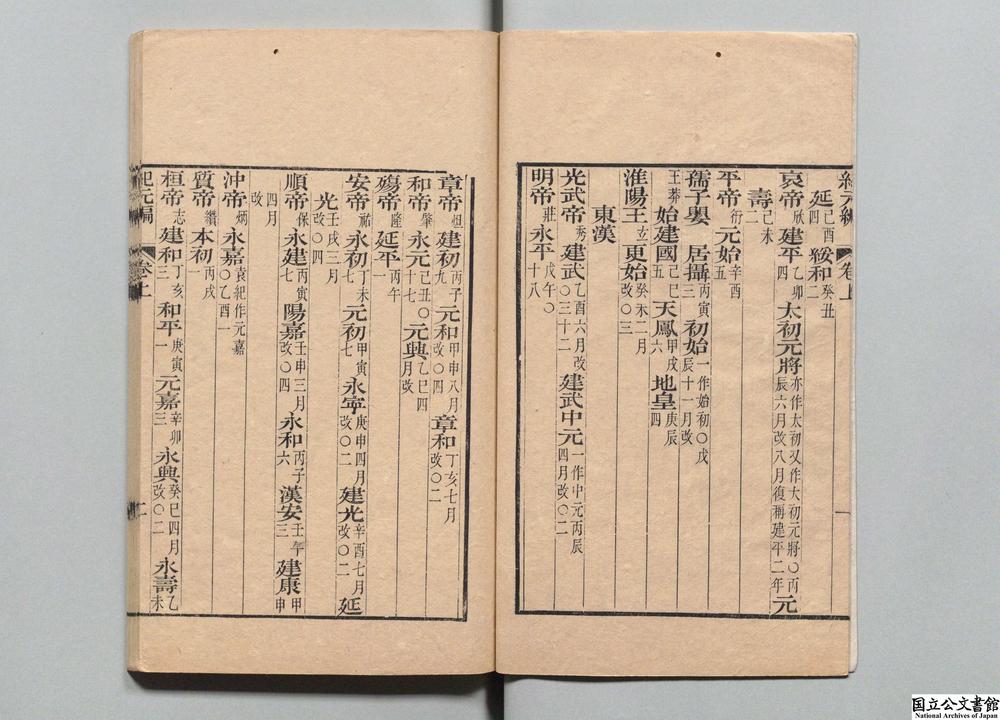 紀元編 卷上 一
延己酉四 綏和癸丑二
哀帝欣 建平乙卯四 太初元將亦作太初又作大初元將〇丙辰六月改八月復稱建平二年 元
壽己未二
平帝衎 元始辛酉五
孺子嬰 居攝丙寅三 初始一作始初〇戊辰十一月改
王莽 始建國己巳五 天鳳甲戌六 地皇庚辰四
淮陽王玄 更始癸未二月改〇三
東漢
光武帝秀 建武乙酉六月改〇三十二 建武中元一作中元丙辰四月改〇二
明帝莊 永平戊午〇十八
章帝炟 建初丙子九 元和甲申八月改〇四 章和丁亥七月改〇二
和帝肇 永元己丑〇十七 元興乙巳四月改
殤帝隆 延平丙午一
安帝祜 永初丁未七 元初甲寅七 永寧庚申四月改〇二 建光辛酉七月改〇二 延
光壬戌三月改〇四
順帝保 永建丙寅七 陽嘉壬申三月改〇四 永和丙子六 漢安壬午三 建康甲申
四月改
沖帝炳 永嘉袁紀作元嘉〇乙酉一
質帝纘 本初丙戌一
桓帝志 建和丁亥三 和平庚寅一 元嘉辛卯三 永興癸巳四月改〇二 永壽乙未
紀元編 卷上 二
国立公文書館
National Archives of Japan